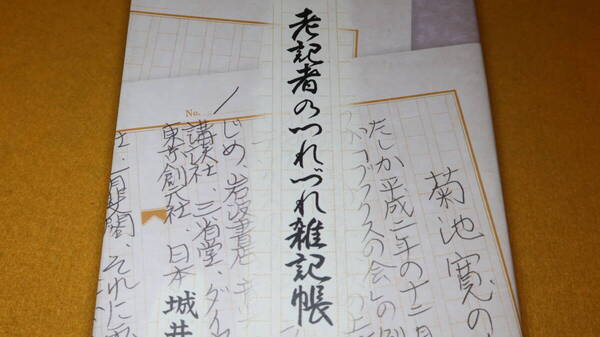 老記者のつれづれ雑記帳
菊池寛の
たしか平成二年の十二月
ブックスの会」の例
の上
No.
じめ、岩波書店、
講談社、三省堂、ダイヤ
東京創元社、日本
社、有斐閣、それに
城井